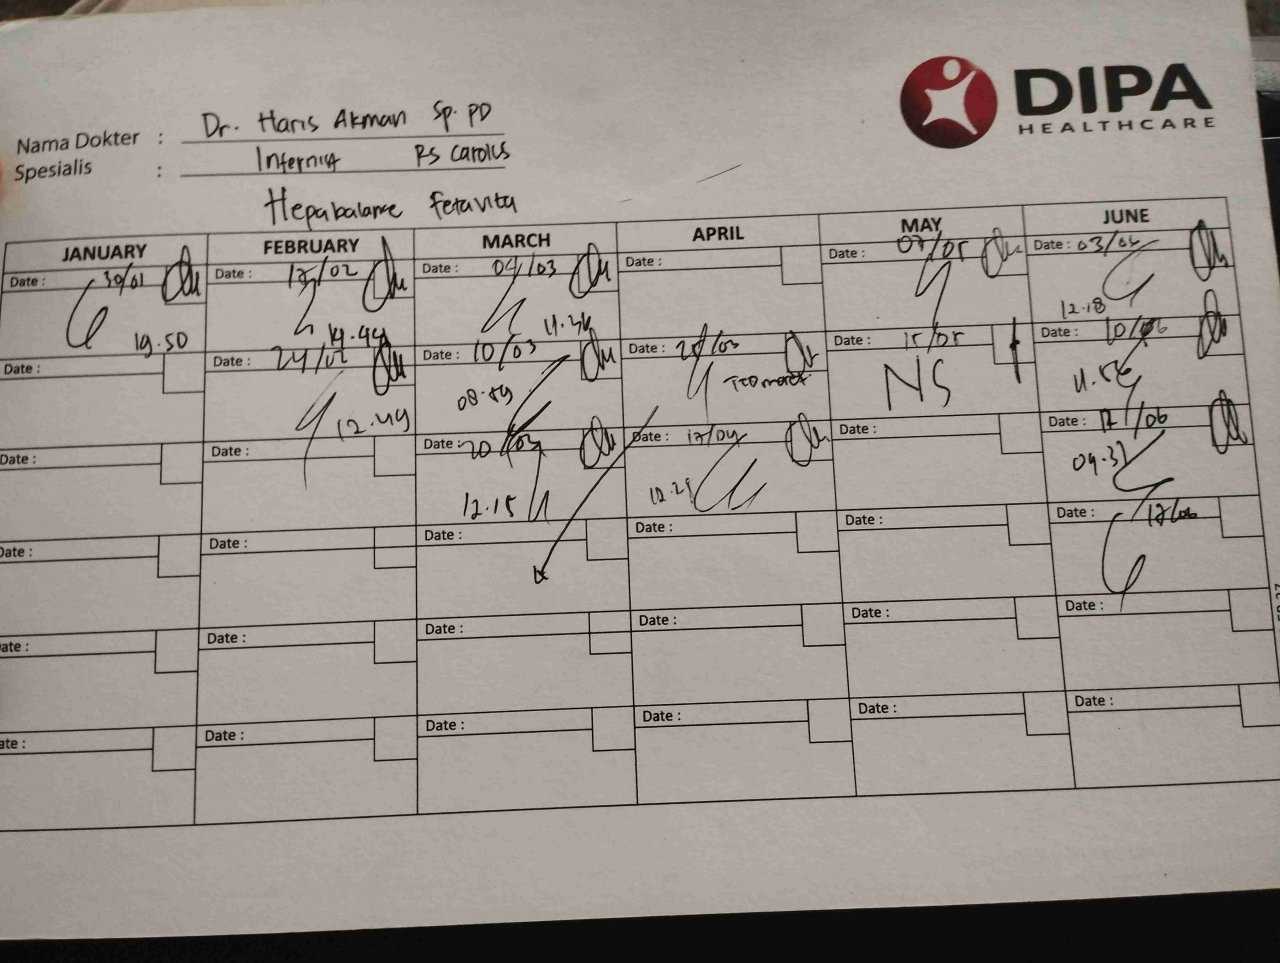 DIPA
HEALTHCARE
Nama Dokter : Dr. Haris Akman Sp. PD
Spesialis : Internist RS Carolus
Hepabalance Fetavita
JANUARY FEBRUARY MARCH APRIL MAY JUNE
Date : 30/01 Date : 17/02 Date : 04/03 Date : Date : 07/05 Date : 03/06
19.50 14.44 11.36 12.18
Date : Date : 24/02 Date : 10/03 Date : 25/03 Date : 15/05 Date : 10/06
12.49 08.59 NS 11.56
Date : Date : Date : 20/03 Date : 17/04 Date : Date : 17/06
12.15 12.29 09.37
Date : Date : Date : Date : Date : Date : 17/06
ate : Date : Date : Date : Date : Date :
ate : Date : Date : Date : Date : Date :